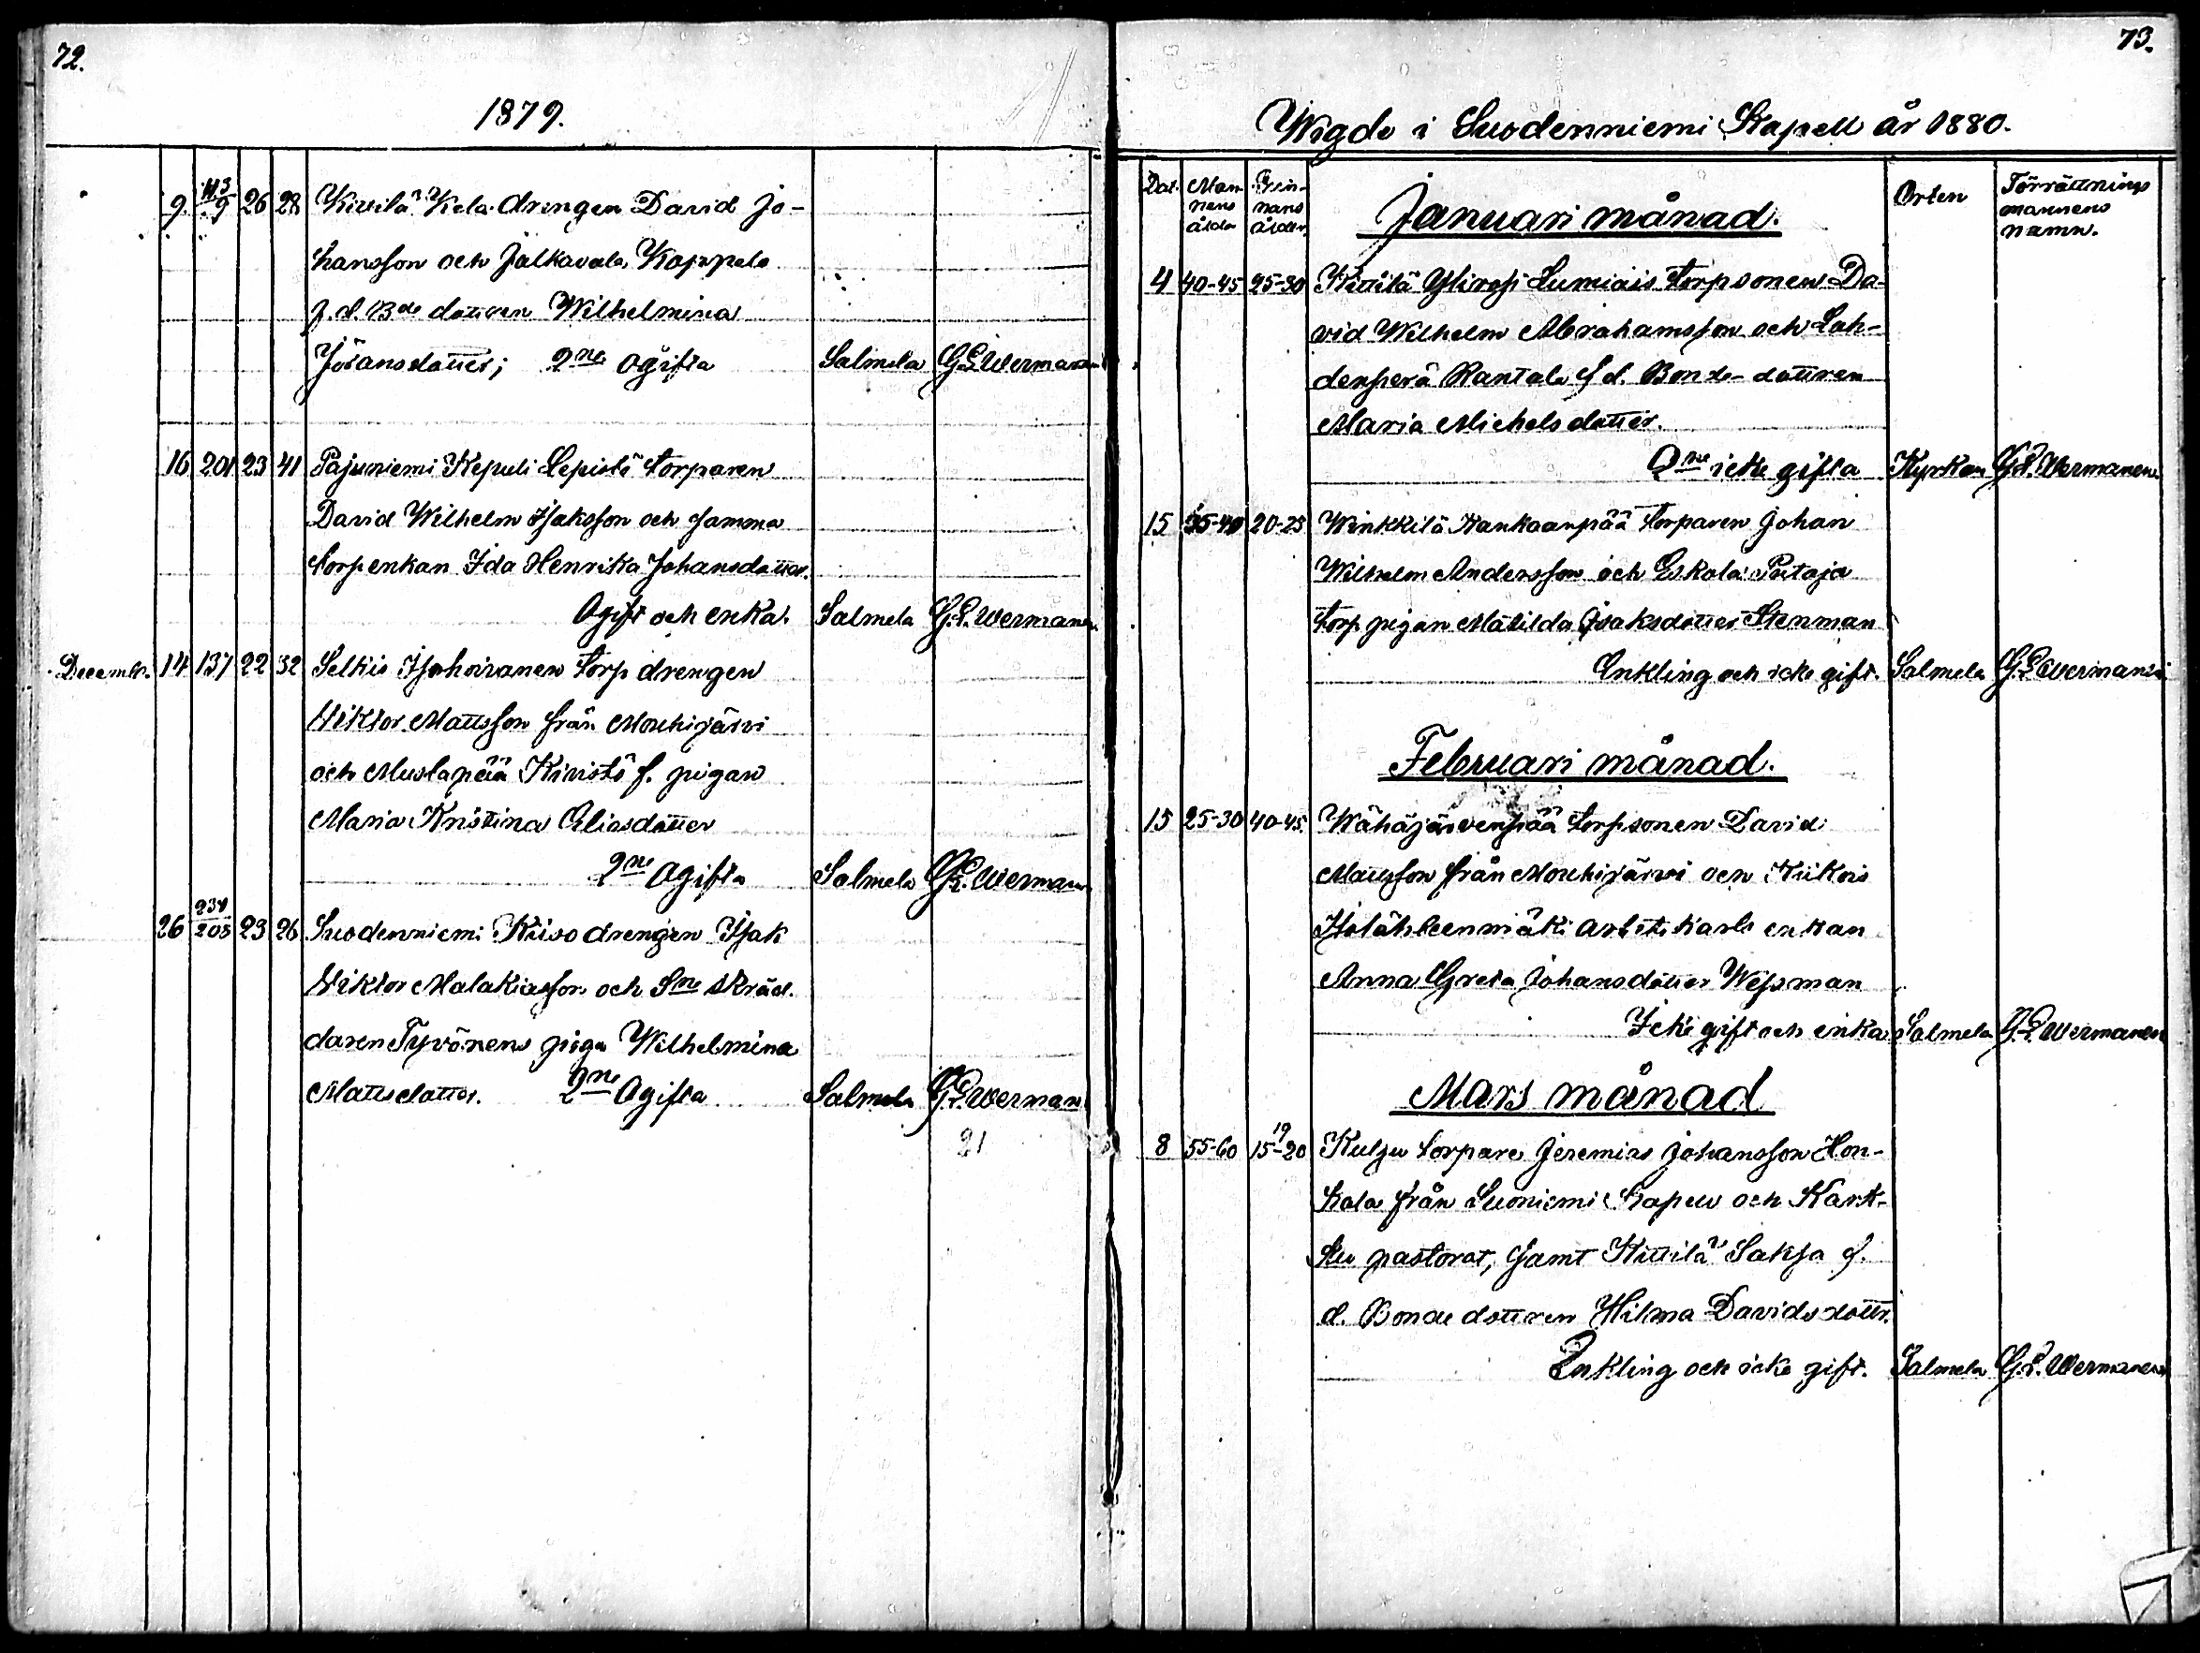 72.
1879.
9. 113/9 26 28 Kivilä Kela drengen David Jo-
hansson och Jalkavala Koppelo
f. d. Bde dottren Wilhelmina
Jöransdotter; 2ne ogifta Salmela G.L. Wermanen
16 201 23 41 Pajuniemi Kepuli Lepistö torparen
David Wilhelm Isaksson och samma
torpenkan Ida Henrika Johansdotter.
Ogift och enka. Salmela G.L. Wermanen
Decemb. 14 137 22 32 Selkis torp drengen
Wiktor Mattsson från Mouhijärvi
och Mustapää Kivistö f. pigan
Maria Kristina Eliasdotter
2ne Ogifta Salmela G.L. Wermanen
26 234/205 23 26 Suodenniemi Kuivo drengen Isak
Wiktor Malakiasson och Sne skräd.
daren Tyvönens piga Wilhelmina
Mattsdotter. 2ne Ogifta Salmela G.L. Werman
21
73.
Wigde i Suodenniemi Kapell år 1880.
Dat. Man-nens ålder Qvin-nans ålder Januari månad. Orten Förrättnings mannens namn.
4 40-45 25-30 Kittilä Yliropi Lumiais torpsonen Da-
vid Wilhelm Abrahamsson och Lah-
denperä Rantala f d. Bonde-dottren
Maria Michelsdotter.
2ne icke gifta Kyrkan G.L. Wermanen
15 35-40 20-25 Winkkilä Kankaanpää torparen Johan
Wilhelm Andersson och Eskola Putaja
torp pigan Matilda Isaksdotter Stenman
Enkling och icke gift. Salmela G.L. Wermanen
Februari månad.
15 25-30 40-45 Wähäjärvenpää torpsonen David
Mattsson från Mouhijärvi och Kiikois
arbets karls enkan
Anna Greta Johansdotter Wessman
Icke gift och enka Salmela G.L. Wermanen
Mars månad
8 55-60 19 15-20 Kulju torpare Jeremias Johansson Hon-
kala från Suoniemi Kapell och Kark-
ku pastorat, samt Kittilä Saksa f.
d. Bonde dottren Hilma Davidsdotter.
Enkling och icke gift. Salmela G.L. Wermanen